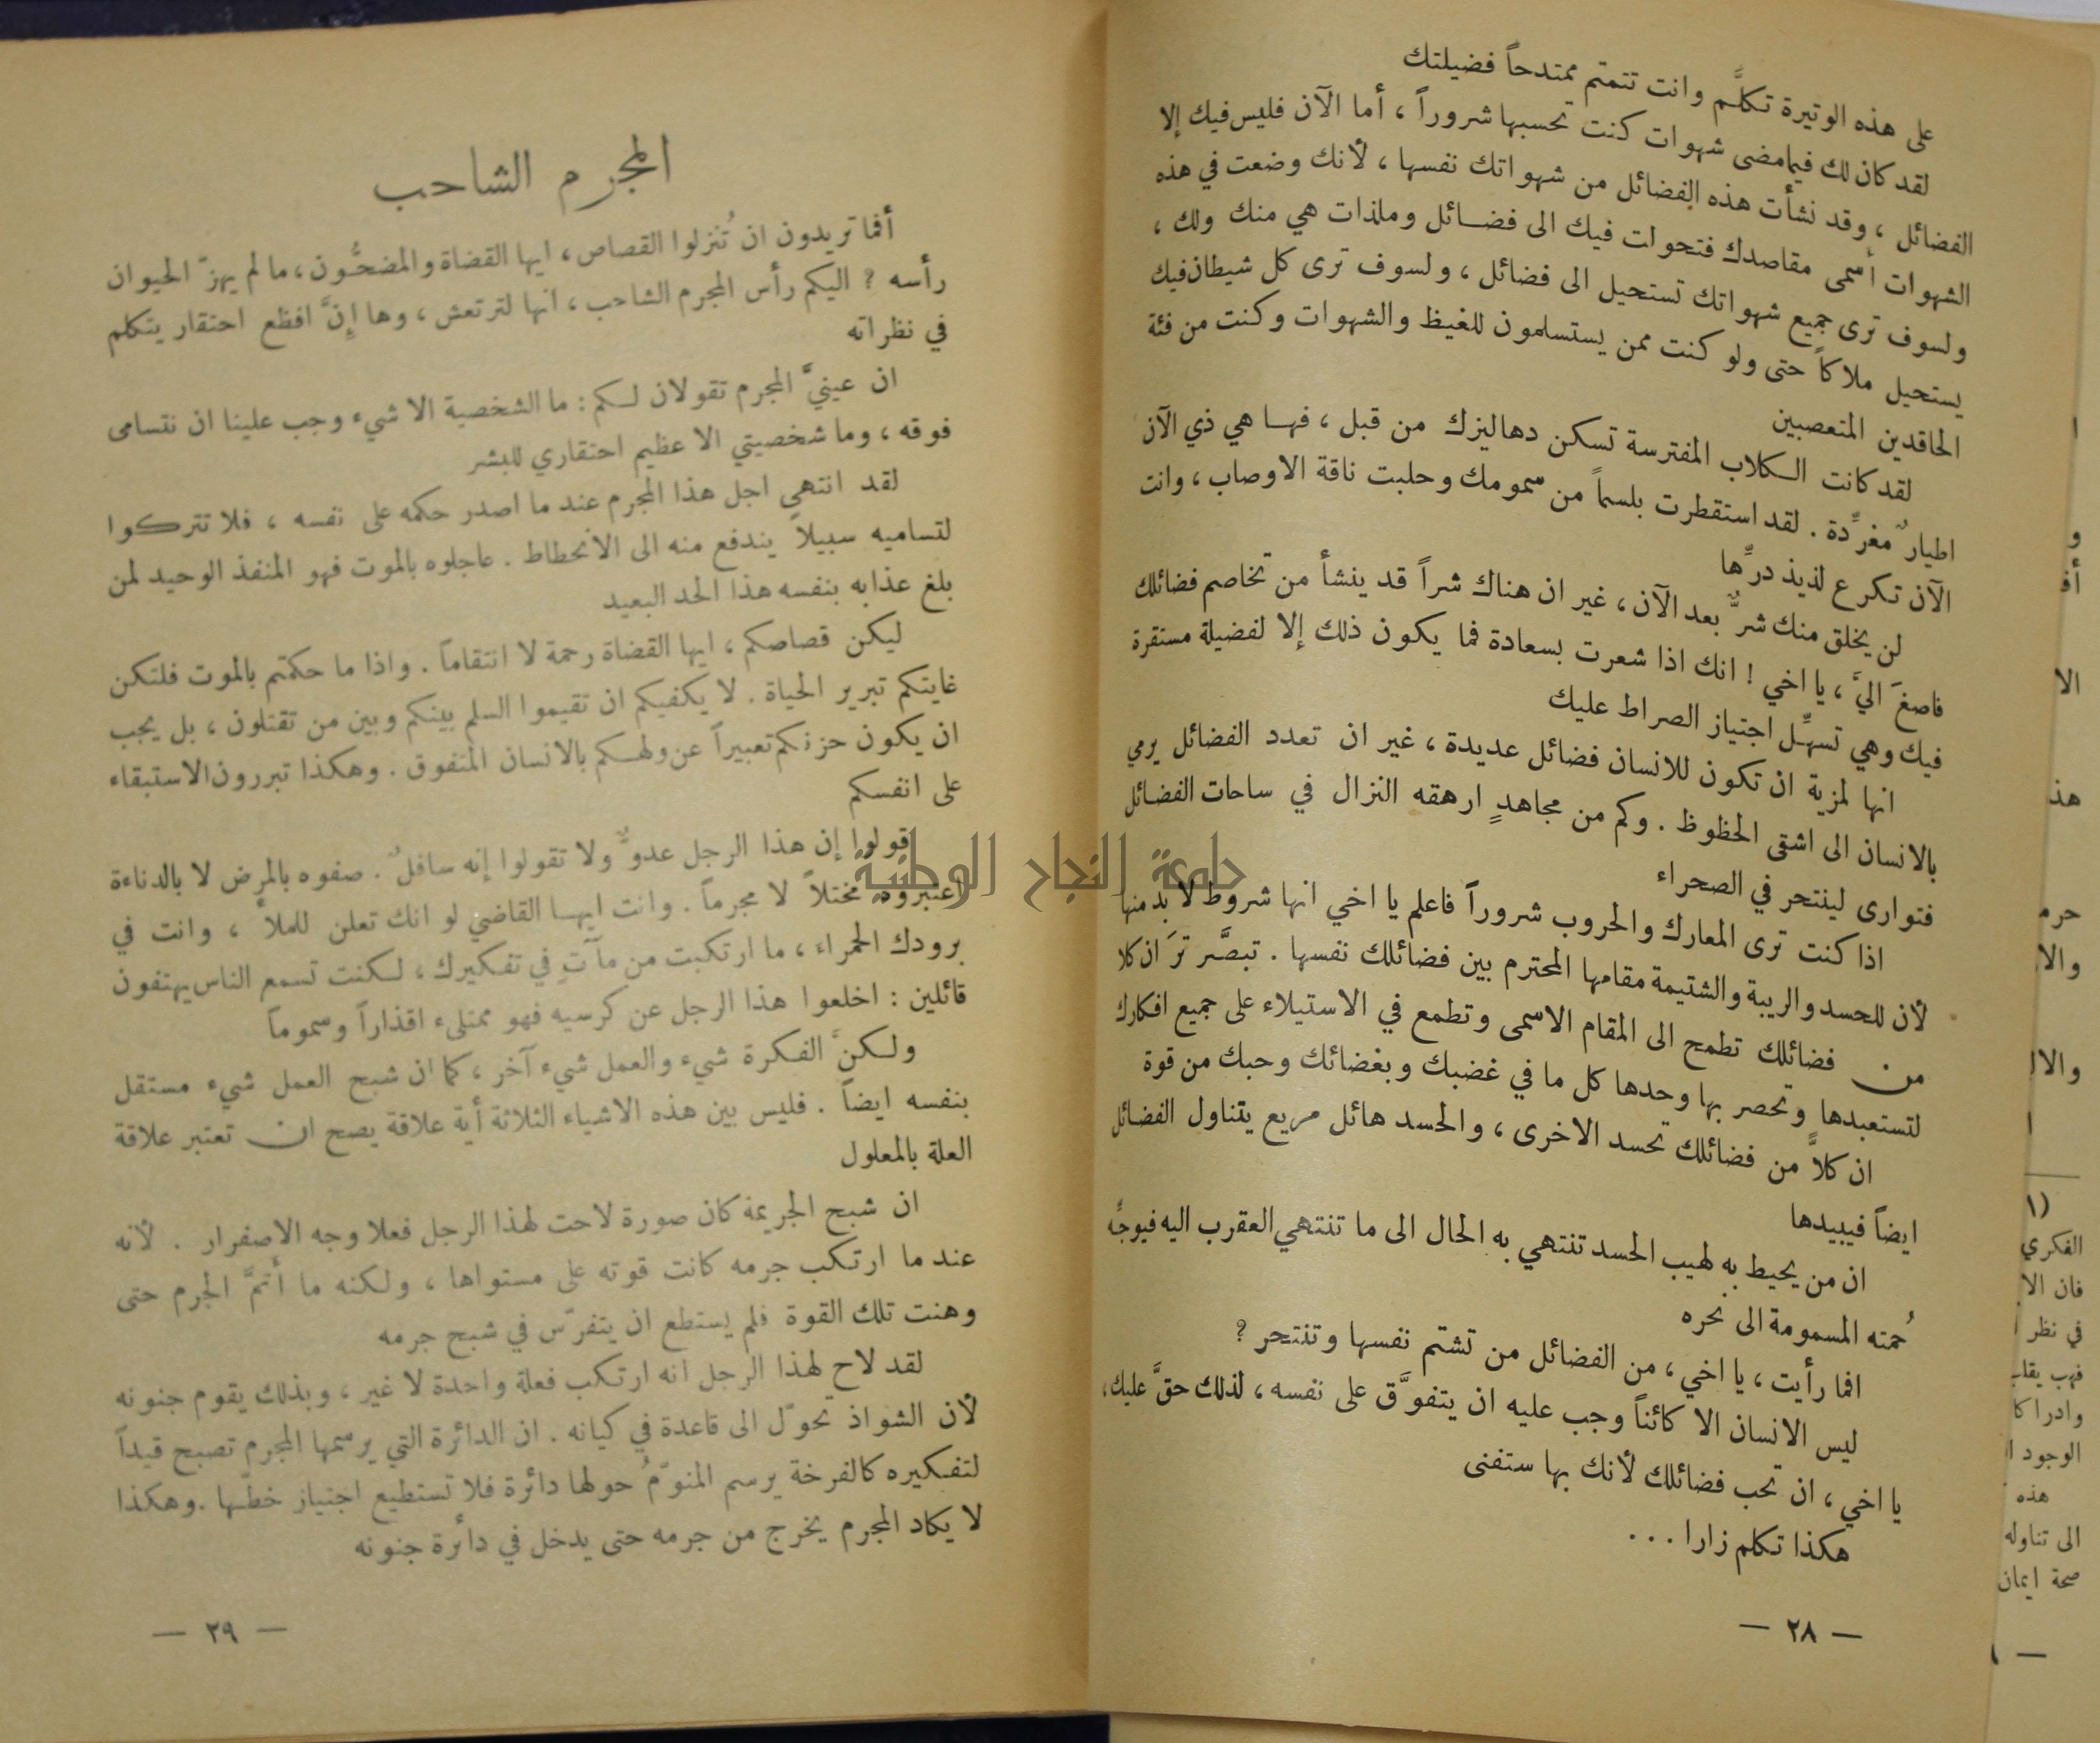 على هذه الوتيرة تكلَّم وانت تتمتم ممتدحاً فضيلتك
لقد كان لك فيما مضى شهوات كنت تحسبها شروراً ، أما الآن فليس فيك إلا
الفضائل ، وقد نشأت هذه الفضائل من شهواتك نفسها ، لأنك وضعت في هذه
الشهوات أسمى مقاصدك فتحولت فيك الى فضائل وملذات هي منك ولك ،
ولسوف ترى جميع شهواتك تستحيل الى فضائل ، ولسوف ترى كل شيطان فيك
يستحيل ملاكاً حتى ولو كنت ممن يستسلمون للغيظ والشهوات وكنت من فئة
الحاقدين المتعصبين
لقد كانت الكلاب المفترسة تسكن دهاليزك من قبل ، فها هي ذي الآن
اطيارٌ مغرِّدة . لقد استقطرت بلسماً من سمومك وحلبت ناقة الاوصاب ، وانت
الآن تكرع لذيذ درِّها
لن يخلق منك شرٌّ بعد الآن ، غير ان هناك شراً قد ينشأ من تخاصم فضائلك
فاصغَ اليَّ ، يا اخي ! انك اذا شعرت بسعادة فما يكون ذلك إلا لفضيلة مستقرة
فيك وهي تسهِّل اجتياز الصراط عليك
انها لمزية ان تكون للانسان فضائل عديدة ، غير ان تعدد الفضائل يرمي
بالانسان الى اشقى الحظوظ . وكم من مجاهدٍ ارهقه النزال في ساحات الفضائل
فتوارى لينتحر في الصحراء
اذا كنت ترى المعارك والحروب شروراً فاعلم يا اخي انها شروط لا بد منها
لأن للحسد والريبة والشتيمة مقامها المحترم بين فضائلك نفسها . تبصَّر ترَ ان كلا
من فضائلك تطمح الى المقام الاسمى وتطمع في الاستيلاء على جميع افكارك
لتستعبدها وتحصر بها وحدها كل ما في غضبك وبغضائك وحبك من قوة
ان كلاًّ من فضائلك تحسد الاخرى ، والحسد هائل مريع يتناول الفضائل
ايضاً فيبيدها
ان من يحيط به لهيب الحسد تنتهي به الحال الى ما تنتهي العقرب اليه فيوجِّه
حُمته المسمومة الى نحره
افما رأيت ، يا اخي ، من الفضائل من تشتم نفسها وتنتحر ?
ليس الانسان الا كائناً وجب عليه ان يتفوَّق على نفسه ، لذلك حقَّ عليك ،
يا اخي ، ان تحب فضائلك لأنك بها ستفنى
هكذا تكلم زارا ...
— ٢٨ —
المجرم الشاحب
أفما تريدون ان تُنزلوا القصاص ، ايها القضاة والمضحُّون ، ما لم يهزّ الحيوان
رأسه ? اليكم رأس المجرم الشاحب ، انها لترتعش ، وها إنَّ افظع احتقار يتكلم
في نظراته
ان عينيَّ المجرم تقولان لكم : ما الشخصية الا شيء وجب علينا ان نتسامى
فوقه ، وما شخصيتي الا عظيم احتقاري للبشر
لقد انتهى اجل هذا المجرم عند ما اصدر حكمه على نفسه ، فلا تتركوا
لتساميه سبيلاً يندفع منه الى الانحطاط . عاجلوه بالموت فهو المنفذ الوحيد لمن
بلغ عذابه بنفسه هذا الحد البعيد
ليكن قصاصكم ، ايها القضاة رحمة لا انتقاماً . واذا ما حكمتم بالموت فلتكن
غايتكم تبرير الحياة . لا يكفيكم ان تقيموا السلم بينكم وبين من تقتلون ، بل يجب
ان يكون حزنكم تعبيراً عن ولهكم بالانسان المتفوق . وهكذا تبررون الاستبقاء
على انفسكم
قولوا إن هذا الرجل عدوٌّ ولا تقولوا إنه سافلٌ . صفوه بالمرض لا بالدناءة
اعتبروه مختلاً لا مجرماً . وانت ايها القاضي لو انك تعلن للملأ ، وانت في
برودك الحمراء ، ما ارتكبت من مآتٍ في تفكيرك ، لكنت تسمع الناس يهتفون
قائلين : اخلعوا هذا الرجل عن كرسيه فهو ممتلىء اقذاراً وسموماً
ولكنَّ الفكرة شيء والعمل شيء آخر ، كما ان شبح العمل شيء مستقل
بنفسه ايضاً . فليس بين هذه الاشياء الثلاثة أية علاقة يصح ان تعتبر علاقة
العلة بالمعلول
ان شبح الجريمة كان صورة لاحت لهذا الرجل فعلا وجه الاصفرار . لأنه
عند ما ارتكب جرمه كانت قوته على مستواها ، ولكنه ما أتمَّ الجرم حتى
وهنت تلك القوة فلم يستطع ان يتفرّس في شبح جرمه
لقد لاح لهذا الرجل انه ارتكب فعلة واحدة لا غير ، وبذلك يقوم جنونه
لأن الشواذ تحوّل الى قاعدة في كيانه . ان الدائرة التي يرسمها المجرم تصبح قيداً
لتفكيره كالفرخة يرسم المنوّمُ حولها دائرة فلا تستطيع اجتياز خطّها . وهكذا
لا يكاد المجرم يخرج من جرمه حتى يدخل في دائرة جنونه
— ٢٩ —
جامعة النجاح الوطنية
والا
هذ
(١
الفكري
فان الا
في نظر
فهب يقلب
وادراكا
الوجود
هذه
الى تناوله
صحة ايمان